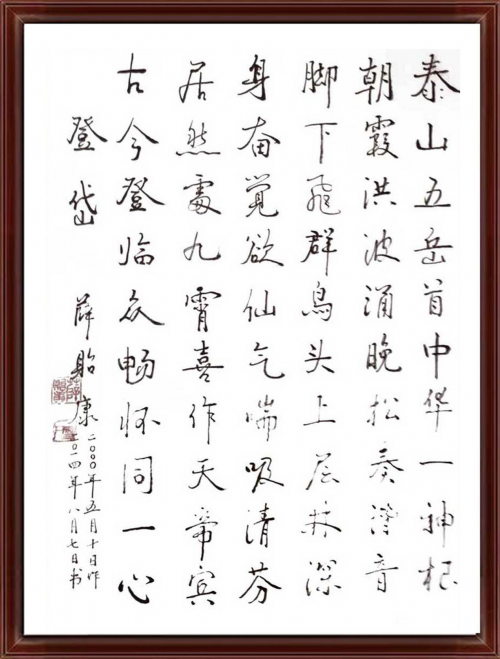 泰山五岳首中华一神根
朝霞洪波涌晚松奏音
脚下飞群鸟头上层林深
身奋觉欲仙气喘吸清芬
居然處九霄喜作天帝宾
古今登临众畅怀同一心
登岱
薛贻康
二〇〇〇年五月十日作
二〇一四年八月七日书